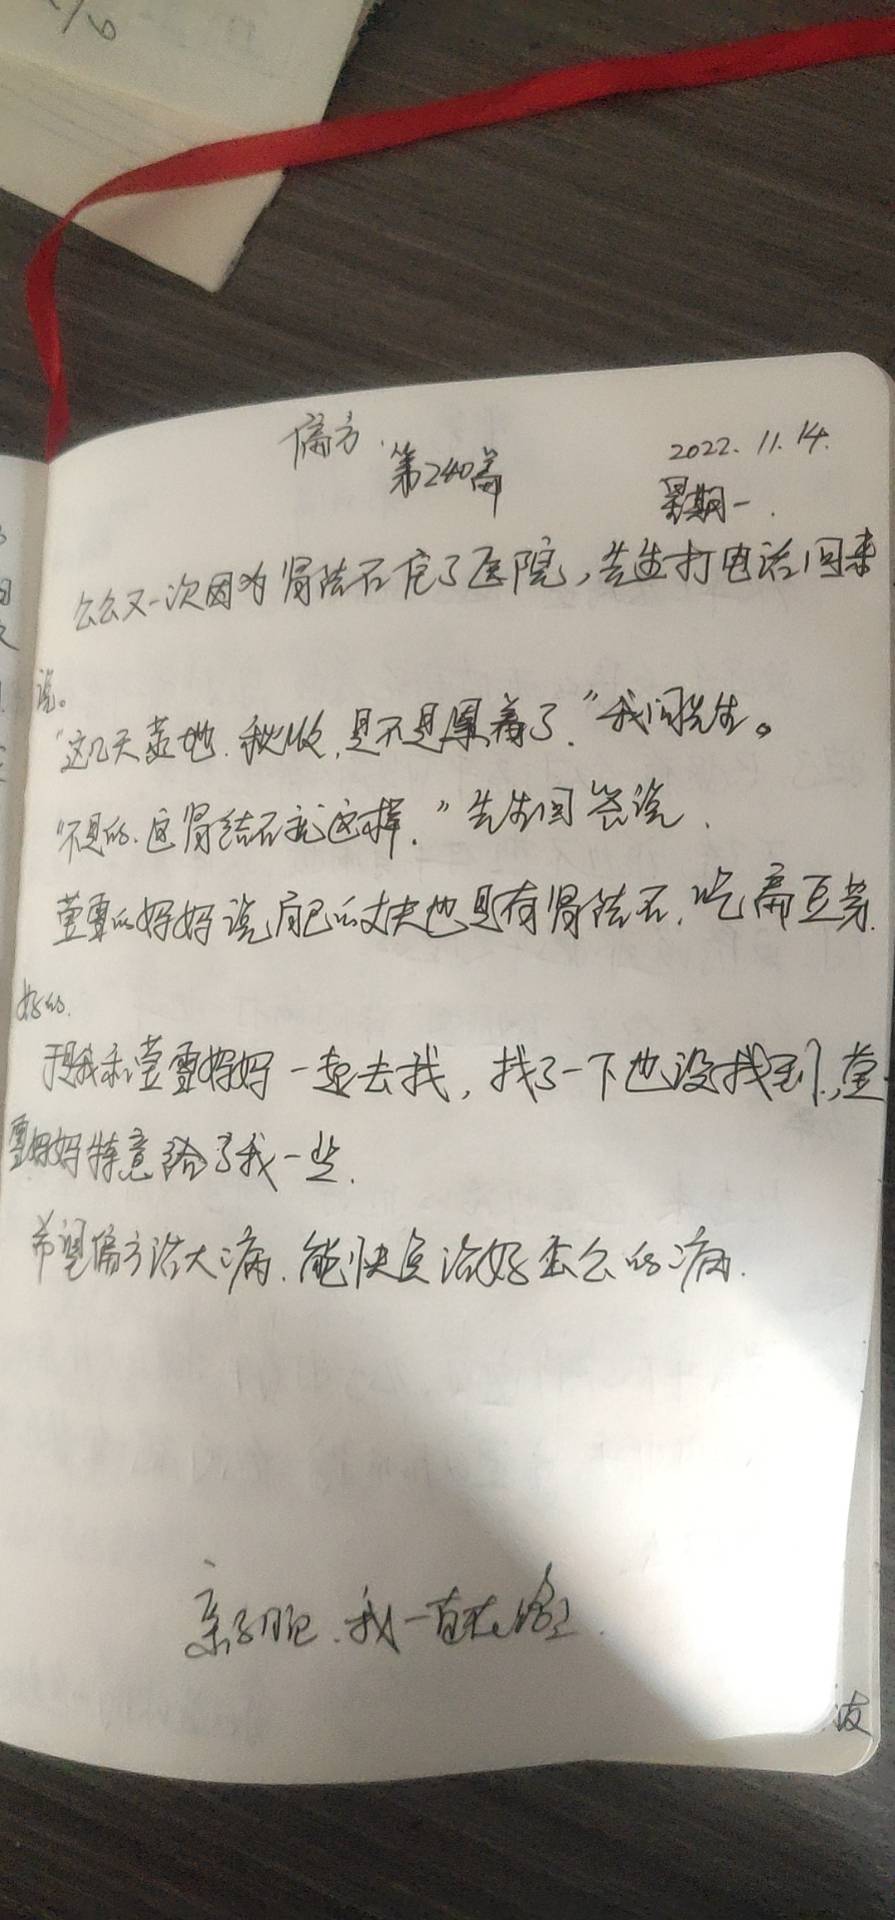 偏方.
第240篇
2022.11.14.
星期一.
公公又一次因为肾结石住了医院,先生打电话回来
说。
"这几天荒地.秋收.是不是累着了."我问先生。
"不是的.这肾结石就这样."先生回答说.
萱雪的妈妈说自己的丈夫也是有肾结石.吃扁豆芽.
好的.
于是我和萱雪妈妈一起去找,找了一下也没找到,萱
雪妈妈特意给了我一些.
希望偏方治大病.能快点治好公公的病.
亲子日记.我一直在路上.
波